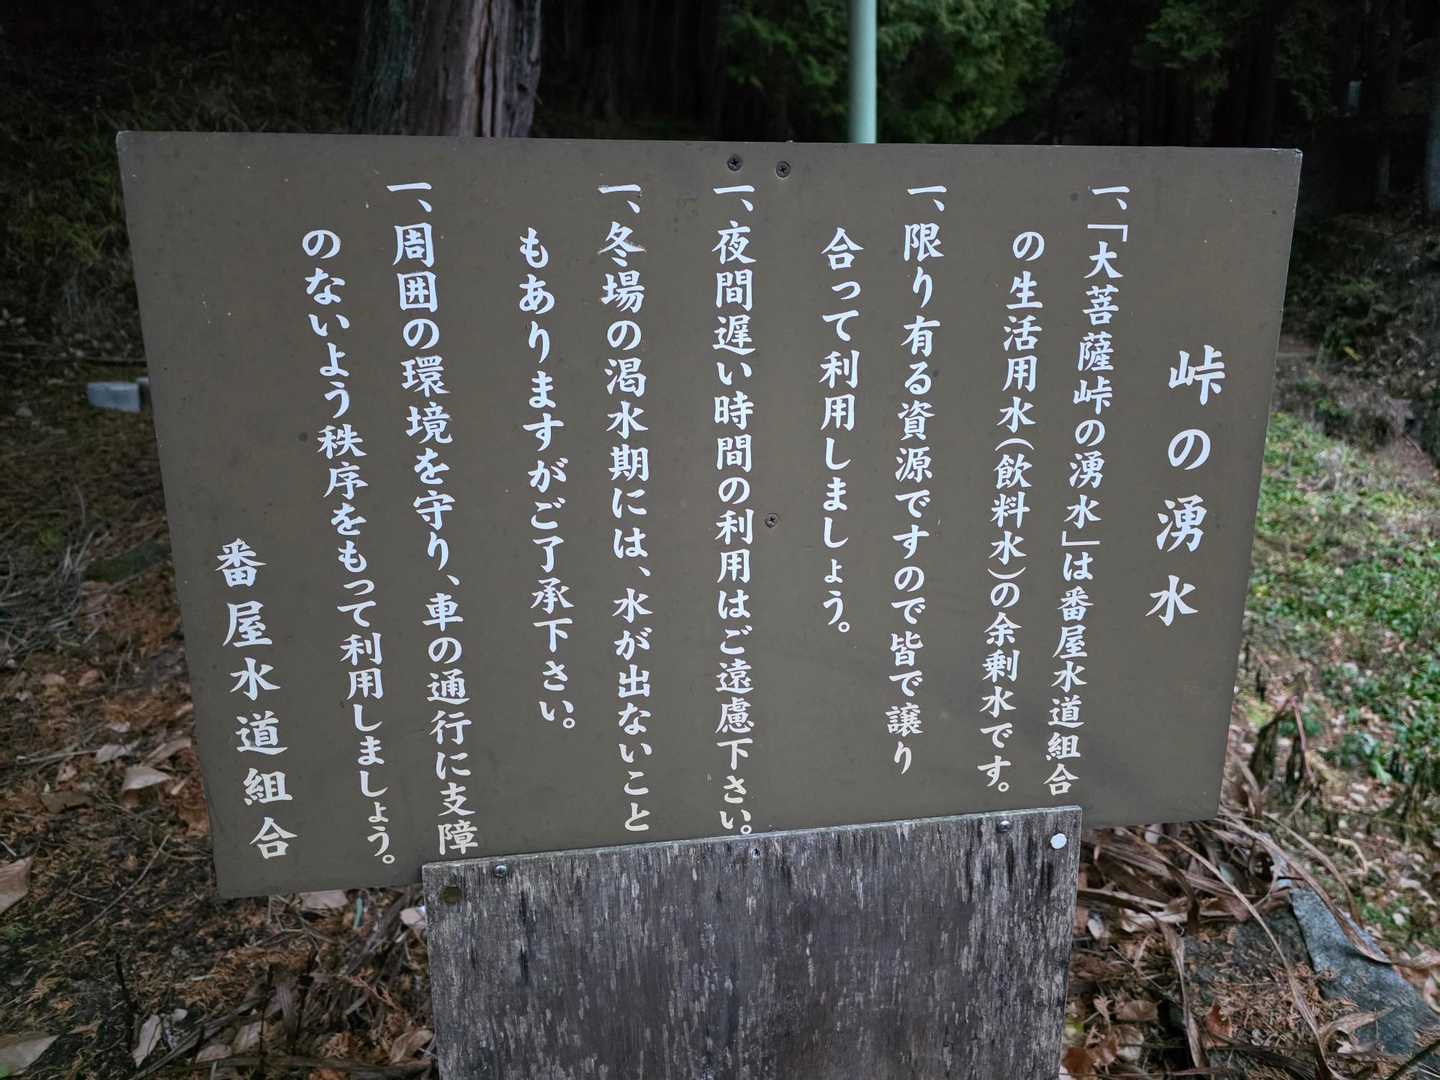 峠の湧水
一、「大菩薩峠の湧水」は番屋水道組合
の生活用水(飲料水)の余剰水です。
一、限り有る資源ですので皆で譲り
合って利用しましょう。
一、夜間遅い時間の利用はご遠慮下さい。
一、冬場の渇水期には、水が出ないこと
もありますがご了承下さい。
一、周囲の環境を守り、車の通行に支障
のないよう秩序をもって利用しましょう。
番屋水道組合